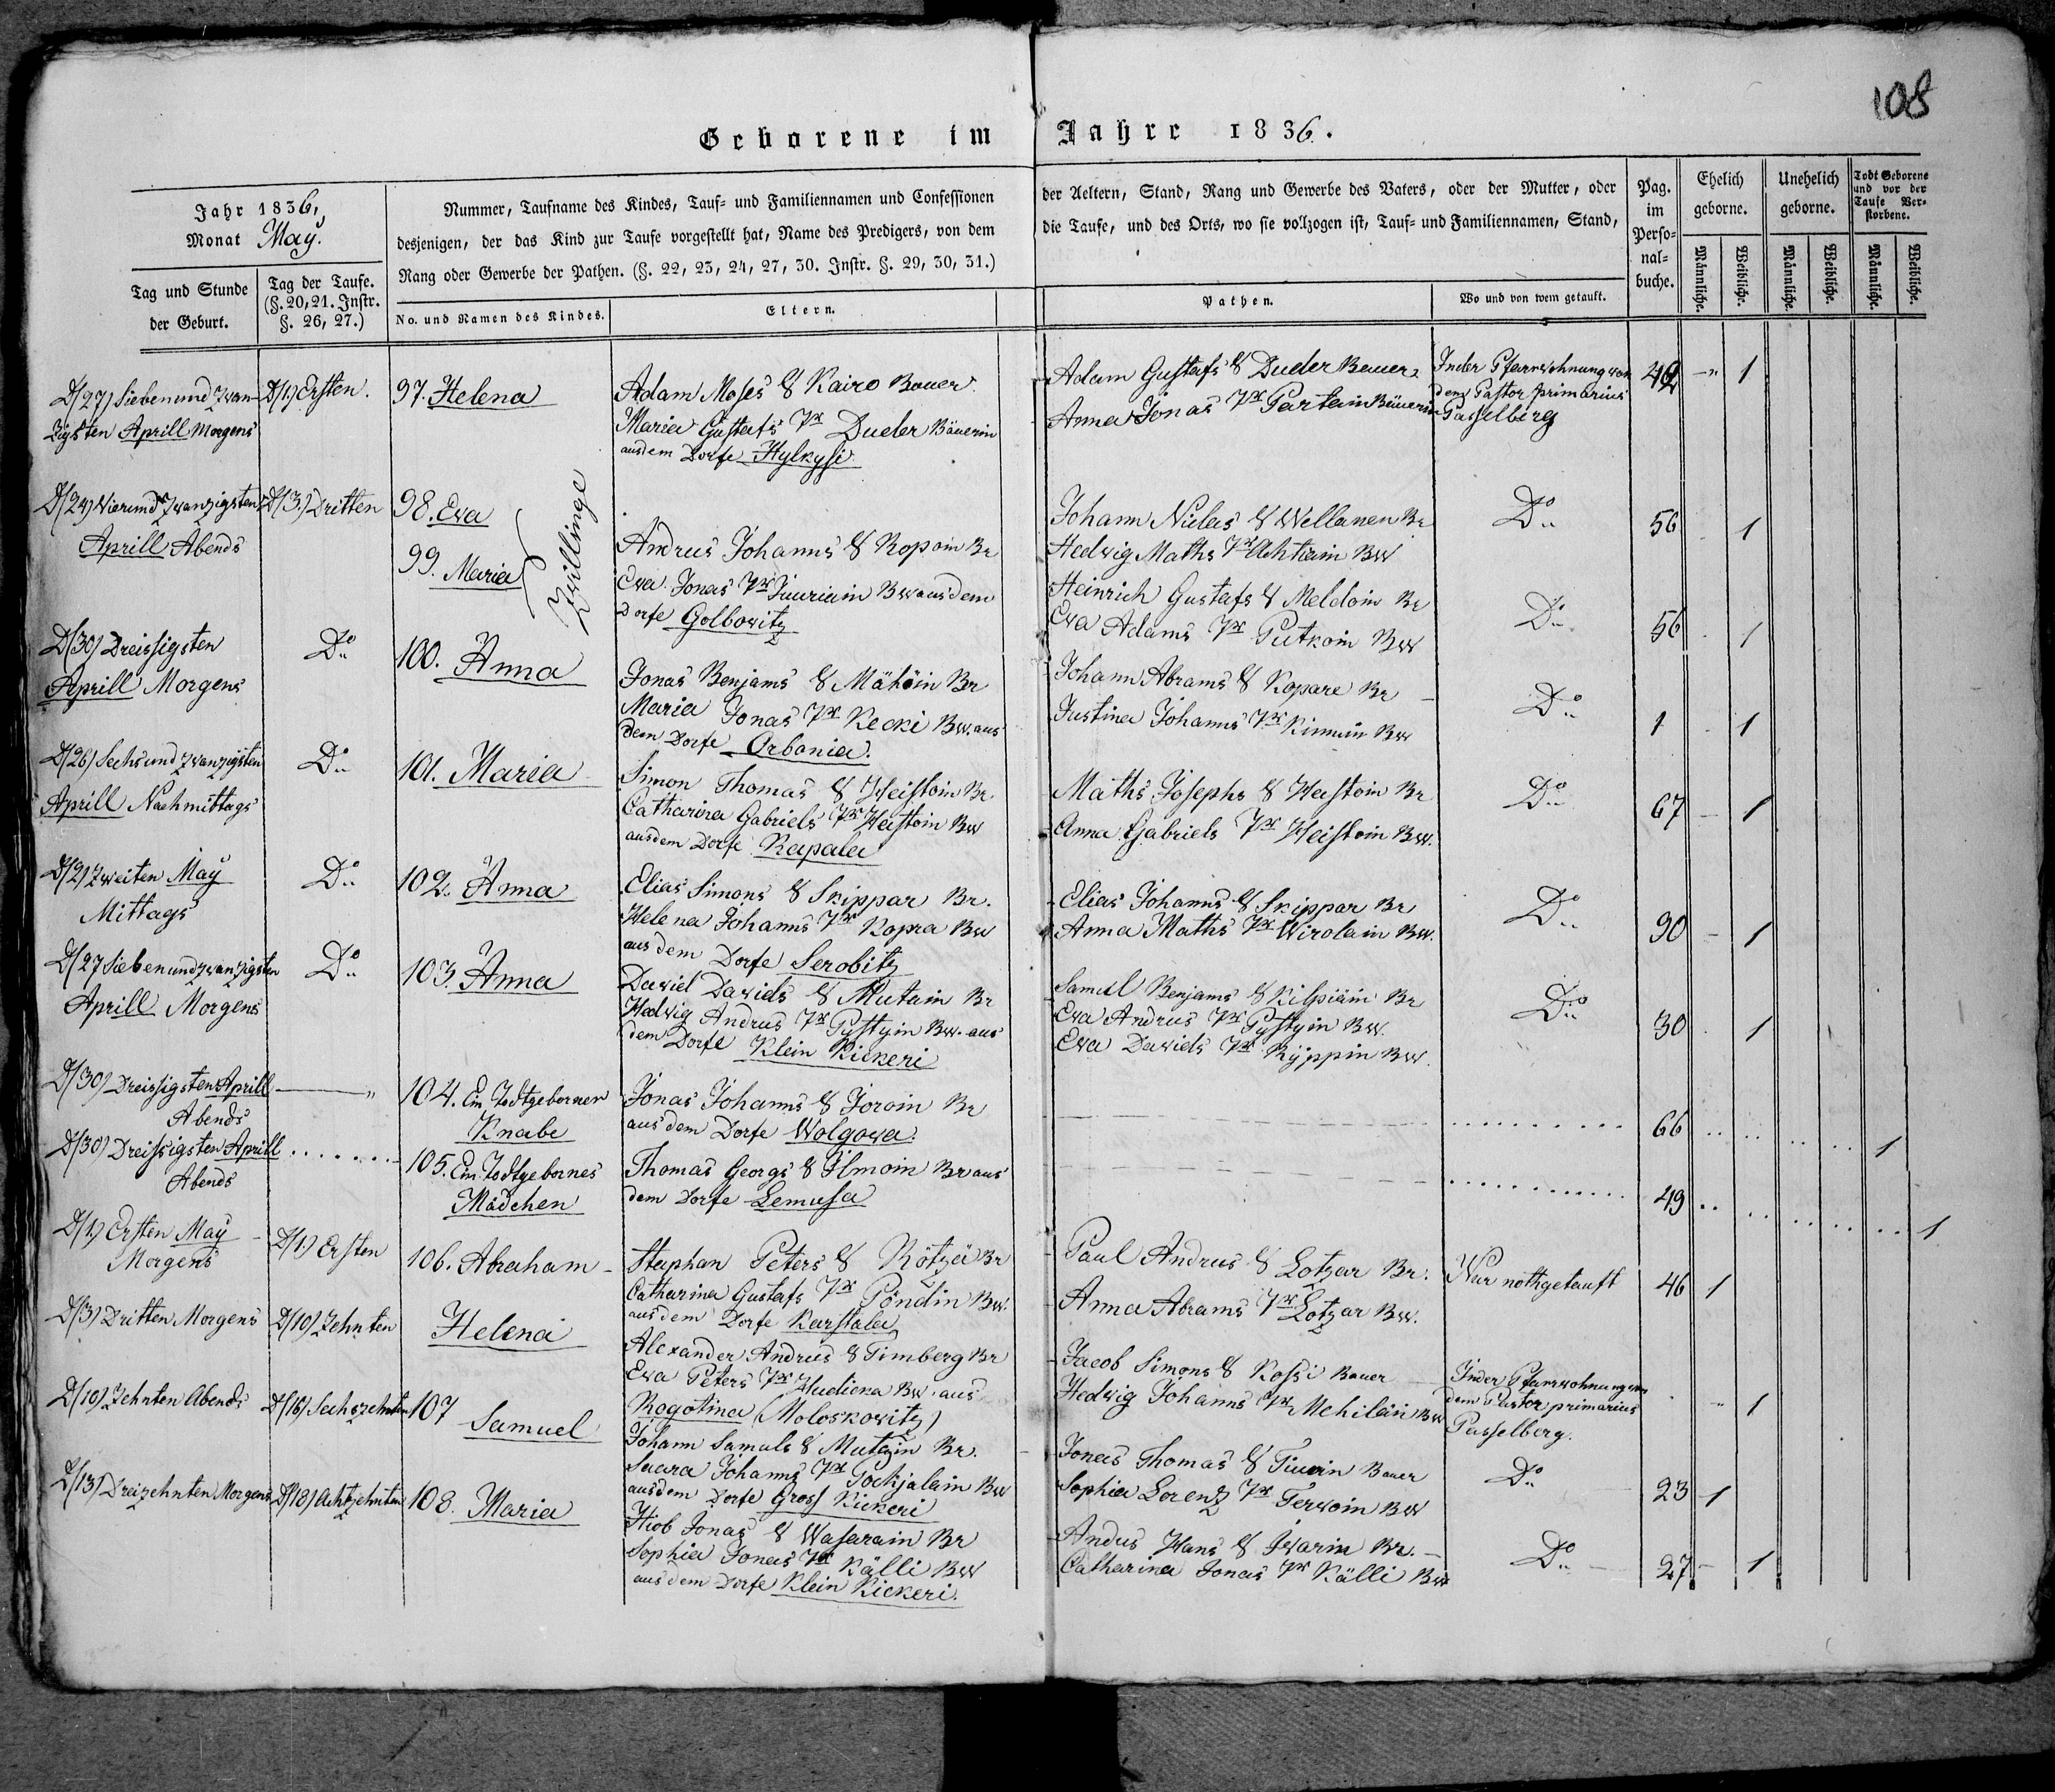 108
Geborene im Jahre 1836.
Jahr 1836,
Monat May.
Tag und Stunde
der Geburt.
Tag der Taufe.
(§. 20, 21. Instr.
§. 26, 27.)
Nummer, Taufname des Kindes, Tauf- und Familiennamen und Confessionen
desjenigen, der das Kind zur Taufe vorgestellt hat, Name des Predigers, von dem
Rang oder Gewerbe der Pathen. (§. 22, 23, 24, 27, 30. Instr. §. 29, 30, 31.)
No. und Namen des Kindes.
Eltern.
der Aeltern, Stand, Rang und Gewerbe des Vaters, oder der Mutter, oder
die Taufe, und des Orts, wo sie vollzogen ist, Tauf- und Familiennamen, Stand,
Pathen.
Wo und von wem getauft.
Pag.
im
Perso-
nal-
buche.
Ehelich
geborne.
Unehelich
geborne.
Todt Geborene
und vor der
Taufe Ver-
storbene.
Männliche.
Weibliche.
Männliche.
Weibliche.
Männliche.
Weibliche.
D(27) Siebenundzwan-
zigsten Aprill Morgens
D(1) Ersten.
97. Helena
Adam Moses S Kairo Bauer
Maria Gustafs Tr Duder Bäuerin
aus dem Dorfe Hylkysi
Adam Gustafs S Duder Bauer
Anna Jonas Tr Partain Bäuerin
In der Pfarrwohnung von
dem Pastor primarius
Passelberg
1
D(24) Vierundzwanzigsten
Aprill Abends
D(3.) Dritten
98. Eva
99. Maria
Zwillinge
Andrus Johanns S Ropoin Br
Eva Jonas Tr Juuriain Bw aus dem
Dorfe Golbowitz
Johann Nielas S Wellanen Br
Hedwig Maths Tr Achtiain Bw
Do
56
1
Heinrich Gustafs S Meldoin Br
Eva Adams Tr Putkoin Bw
Do
56
1
D(30) Dreissigsten
Aprill Morgens
Do
100. Anna
Jonas Benjams S Mähöin Br
Maria Jonas Tr Kecki Bw. aus
dem Dorfe Orbonia.
Johann Abrams S Kopare Br
Justina Johanns Tr Kinnuin Bw
Do
1
1
D(26) Sechsundzwanzigsten
Aprill Nachmittags
Do
101. Maria
Simon Thomas S Heistoin Br
Catharina Gabriels Tr Heistoin Bw
aus dem Dorfe Kapala
Maths Josephs S Hastoin Br
Anna Gabriels Tr Heistoin Bw.
Do
67
1
D(2) Zweiten May
Mittags
Do
102. Anna
Elias Simons S Skippar Br.
Helena Johanns Tr Kopra Bw
aus dem Dorfe Serobitz
Elias Johanns S Skippar Br
Anna Maths Tr Wirolain Bw.
Do
90
1
D(27 Siebenundzwanzigsten
Aprill Morgens
Do
103. Anna
Dawid Dawids S Mutain Br
Hedwig Andrus Tr Pystyin Bw. aus
dem Dorfe Klein Kickeri
Samul Benjams S Kilpiäin Br
Eva Andrus Tr Pystyin Bw.
Eva Dawids Tr Ryppin Bw.
Do
30
1
D(30) Dreissigsten Aprill
Abends
104. Ein Todtgeborner
Knabe
Jonas Johanns S Joroin Br
aus dem Dorfe Wolgowa.
66
1
D(30) Dreissigsten Aprill
Abends
105. Ein Todtgebornes
Mädchen
Thomas Georgs S Ilmoin Br aus
dem Dorfe Lemusa
49
1
D(1) Ersten May
Morgens
D(1) Ersten
106. Abraham
Stephan Peters S Rötzä Br
Catharina Gustafs Tr Pöndin Bw.
aus dem Dorfe Karstala
Paul Andrus S Lotzar Br.
Anna Abrams Tr Lotzar Bw.
War nothgetauft
46
1
D(3) Dritten Morgens
D(10) Zehnten
Helena
Alexander Andrus S Timberg Br
Eva Peters Tr Hudiena Bw. aus
Rogotina (Moloskowitz)
Jacob Simons S Kossi Bauer
Hedwig Johanns Tr Mehiläin Bw
In der Pfarrwohnung von
dem Pastor primarius
Passelberg.
1
D(10) Zehnten Abends
D(16) Sechszehnten
107
Samuel
Johann Samuls S Mutain Br.
Saara Johanns Tr Pochjalain Bw
aus dem Dorfe Gross Kickeri
Jonas Thomas S Tiuoin Bauer
Sophia Lorenz Tr Terwoin Bw
Do
23
1
D(13) Dreizehnten Morgens
D(18) Achtzehnten
108. Maria
Hiob Jonas S Wasarain Br
Sophia Jonas Tr Källi Bw
aus dem Dorfe Klein Kickeri.
Andus Hans S Iwarin Br.
Catharina Jonas Tr Källi Bw
Do
27
1